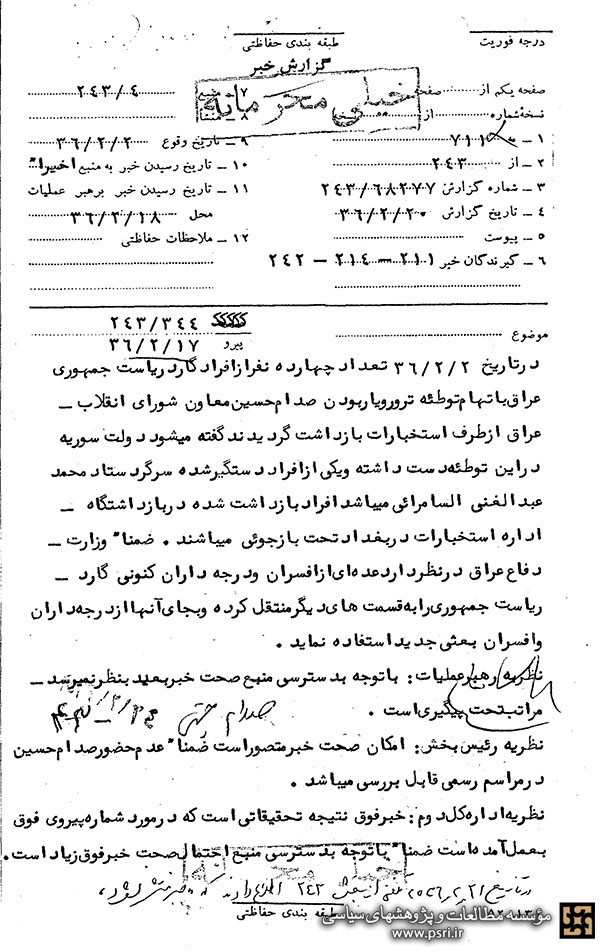 درجه فوریت
طبقه بندی حفاظتی
گزارش خبر
خیلی محرمانه
صفحه یکم از صفحه
نسخهٔ شماره از
۱ ــ
۲ ــ از ۲۴۳
۳ ــ شماره گزارش ۲۴۳/۶۸۲۷۷
۴ ــ تاریخ گزارش ۳۶/۲/۲۰
۵ ــ پیوست
۶ ــ گیرندگان خبر ۲۱۱ ــ ۲۱۴ ــ ۲۴۲
۷ ــ منبع ۲۴۳/۴
۸ ــ
۹ ــ تاریخ وقوع ۳۶/۲/۲
۱۰ ــ تاریخ رسیدن خبر به منبع اخیرا"
۱۱ ــ تاریخ رسیدن خبر برهبر عملیات
محل ۳۶/۲/۱۸
۱۲ ــ ملاحظات حفاظتی
موضوع
۲۴۳/۳۴۴
پیرو ۳۶/۲/۱۷
درتاریخ ۳۶/۲/۲ تعداد چهارده نفرازافراد گارد ریاست جمهوری
عراق باتهام توطئه ترورویاربودن صدام حسین معاون شورای انقلاب ــ
عراق ازطرف استخبارات بازداشت گردیدند گفته میشود دولت سوریه
دراین توطئه دست داشته ویکی ازافراد دستگیرشده سرگرد ستاد محمد
عبدالغنی السامرائی میباشد افراد بازداشت شده دربازداشتگاه ــ
اداره استخبارات دربغداد تحت بازجوئی میباشند . ضمنا" وزارت ــ
دفاع عراق درنظردارد عده ای ازافسران ودرجه داران کنونی گارد ــ
ریاست جمهوری رابه قسمت های دیگرمنتقل کرده وبجای آنها ازدرجه داران
وافسران بعثی جدید استفاده نماید .
نظریه رهبرعملیات : باتوجه بدسترسی منبع صحت خبربعید بنظرنمیرسد ــ
مراتب تحت پیگیری است .
نظریه رئیس بخش : امکان صحت خبرمتصوراست ضمنا" عدم حضورصدام حسین
درمراسم رسمی قابل بررسی میباشد .
نظریه اداره کل دوم : خبرفوق نتیجه تحقیقاتی است که درمورد شماره پیروی فوق
بعمل آمده است ضمنا" باتوجه بدسترسی منبع احتمال صحت خبرفوق زیاد است .
خیلی محرمانه
طبقه بندی حفاظتی
مؤسسه مطالعات و پژوهشهای سیاسی
www.psri.ir